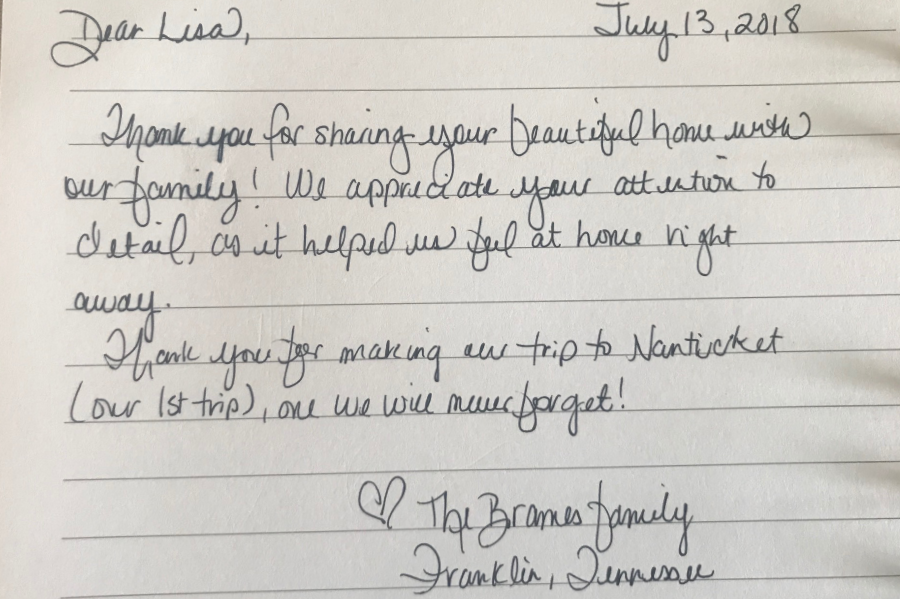 Dear Lisa, July 13, 2018
Thank you for sharing your beautiful home with
our family! We appreciate your attention to
detail, as it helped us feel at home right
away.
Thank you for making our trip to Nantucket
(our 1st trip), one we will never forget!
♡ The Brames family
Franklin, Tennessee